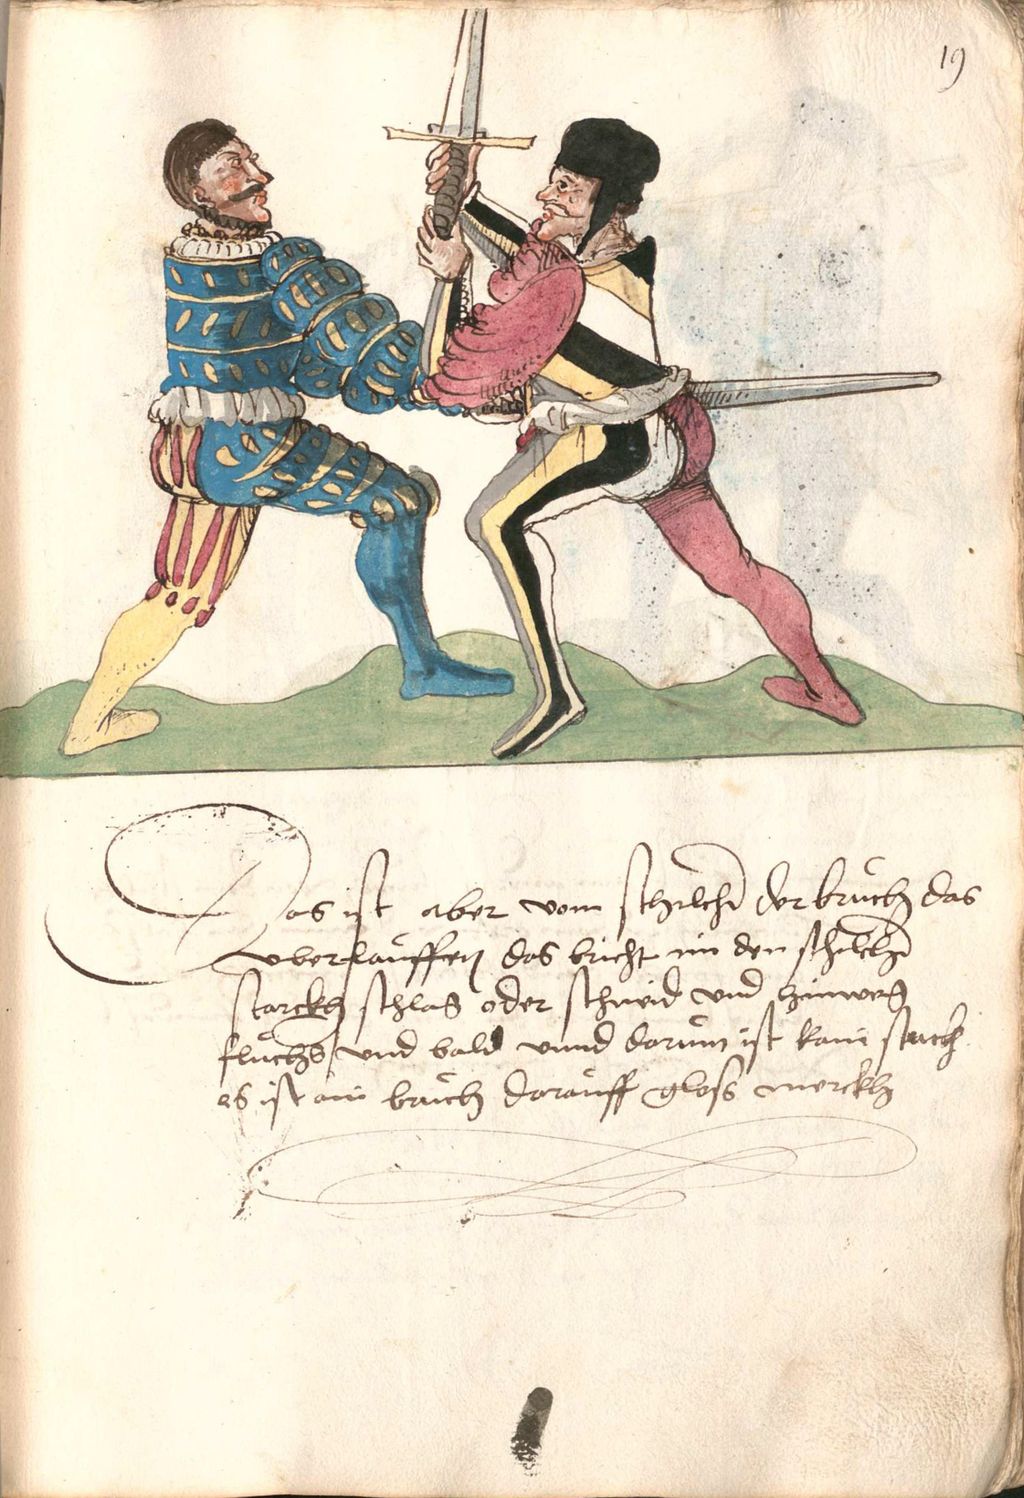 19
Das ist aber vom schilchē der bruch das
uberlauffen das bricht im den schilchē
starckh schlag oder schneid und hinweg
fluchs und bald unnd darum ist kain
es ist ain bruch darauff gloss merckh